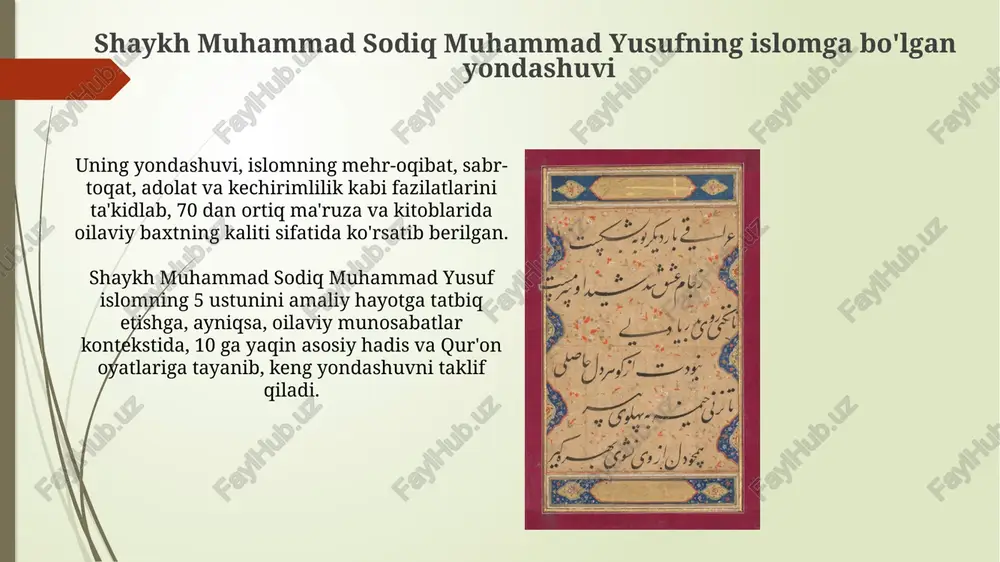 Shaykh Muhammad Sodiq Muhammad Yusufning islomga bo'lgan
yondashuvi
Uning yondashuvi, islomning mehr-oqibat, sabr-
toqat, adolat va kechirimlilik kabi fazilatlarini
ta'kidlab, 70 dan ortiq ma'ruza va kitoblarida
oilaviy baxtning kaliti sifatida ko'rsatib berilgan.
Shaykh Muhammad Sodiq Muhammad Yusuf
islomning 5 ustunini amaliy hayotga tatbiq
etishga, ayniqsa, oilaviy munosabatlar
kontekstida, 10 ga yaqin asosiy hadis va Qur'on
oyatlariga tayanib, keng yondashuvni taklif
qiladi.
FaylHub.uz